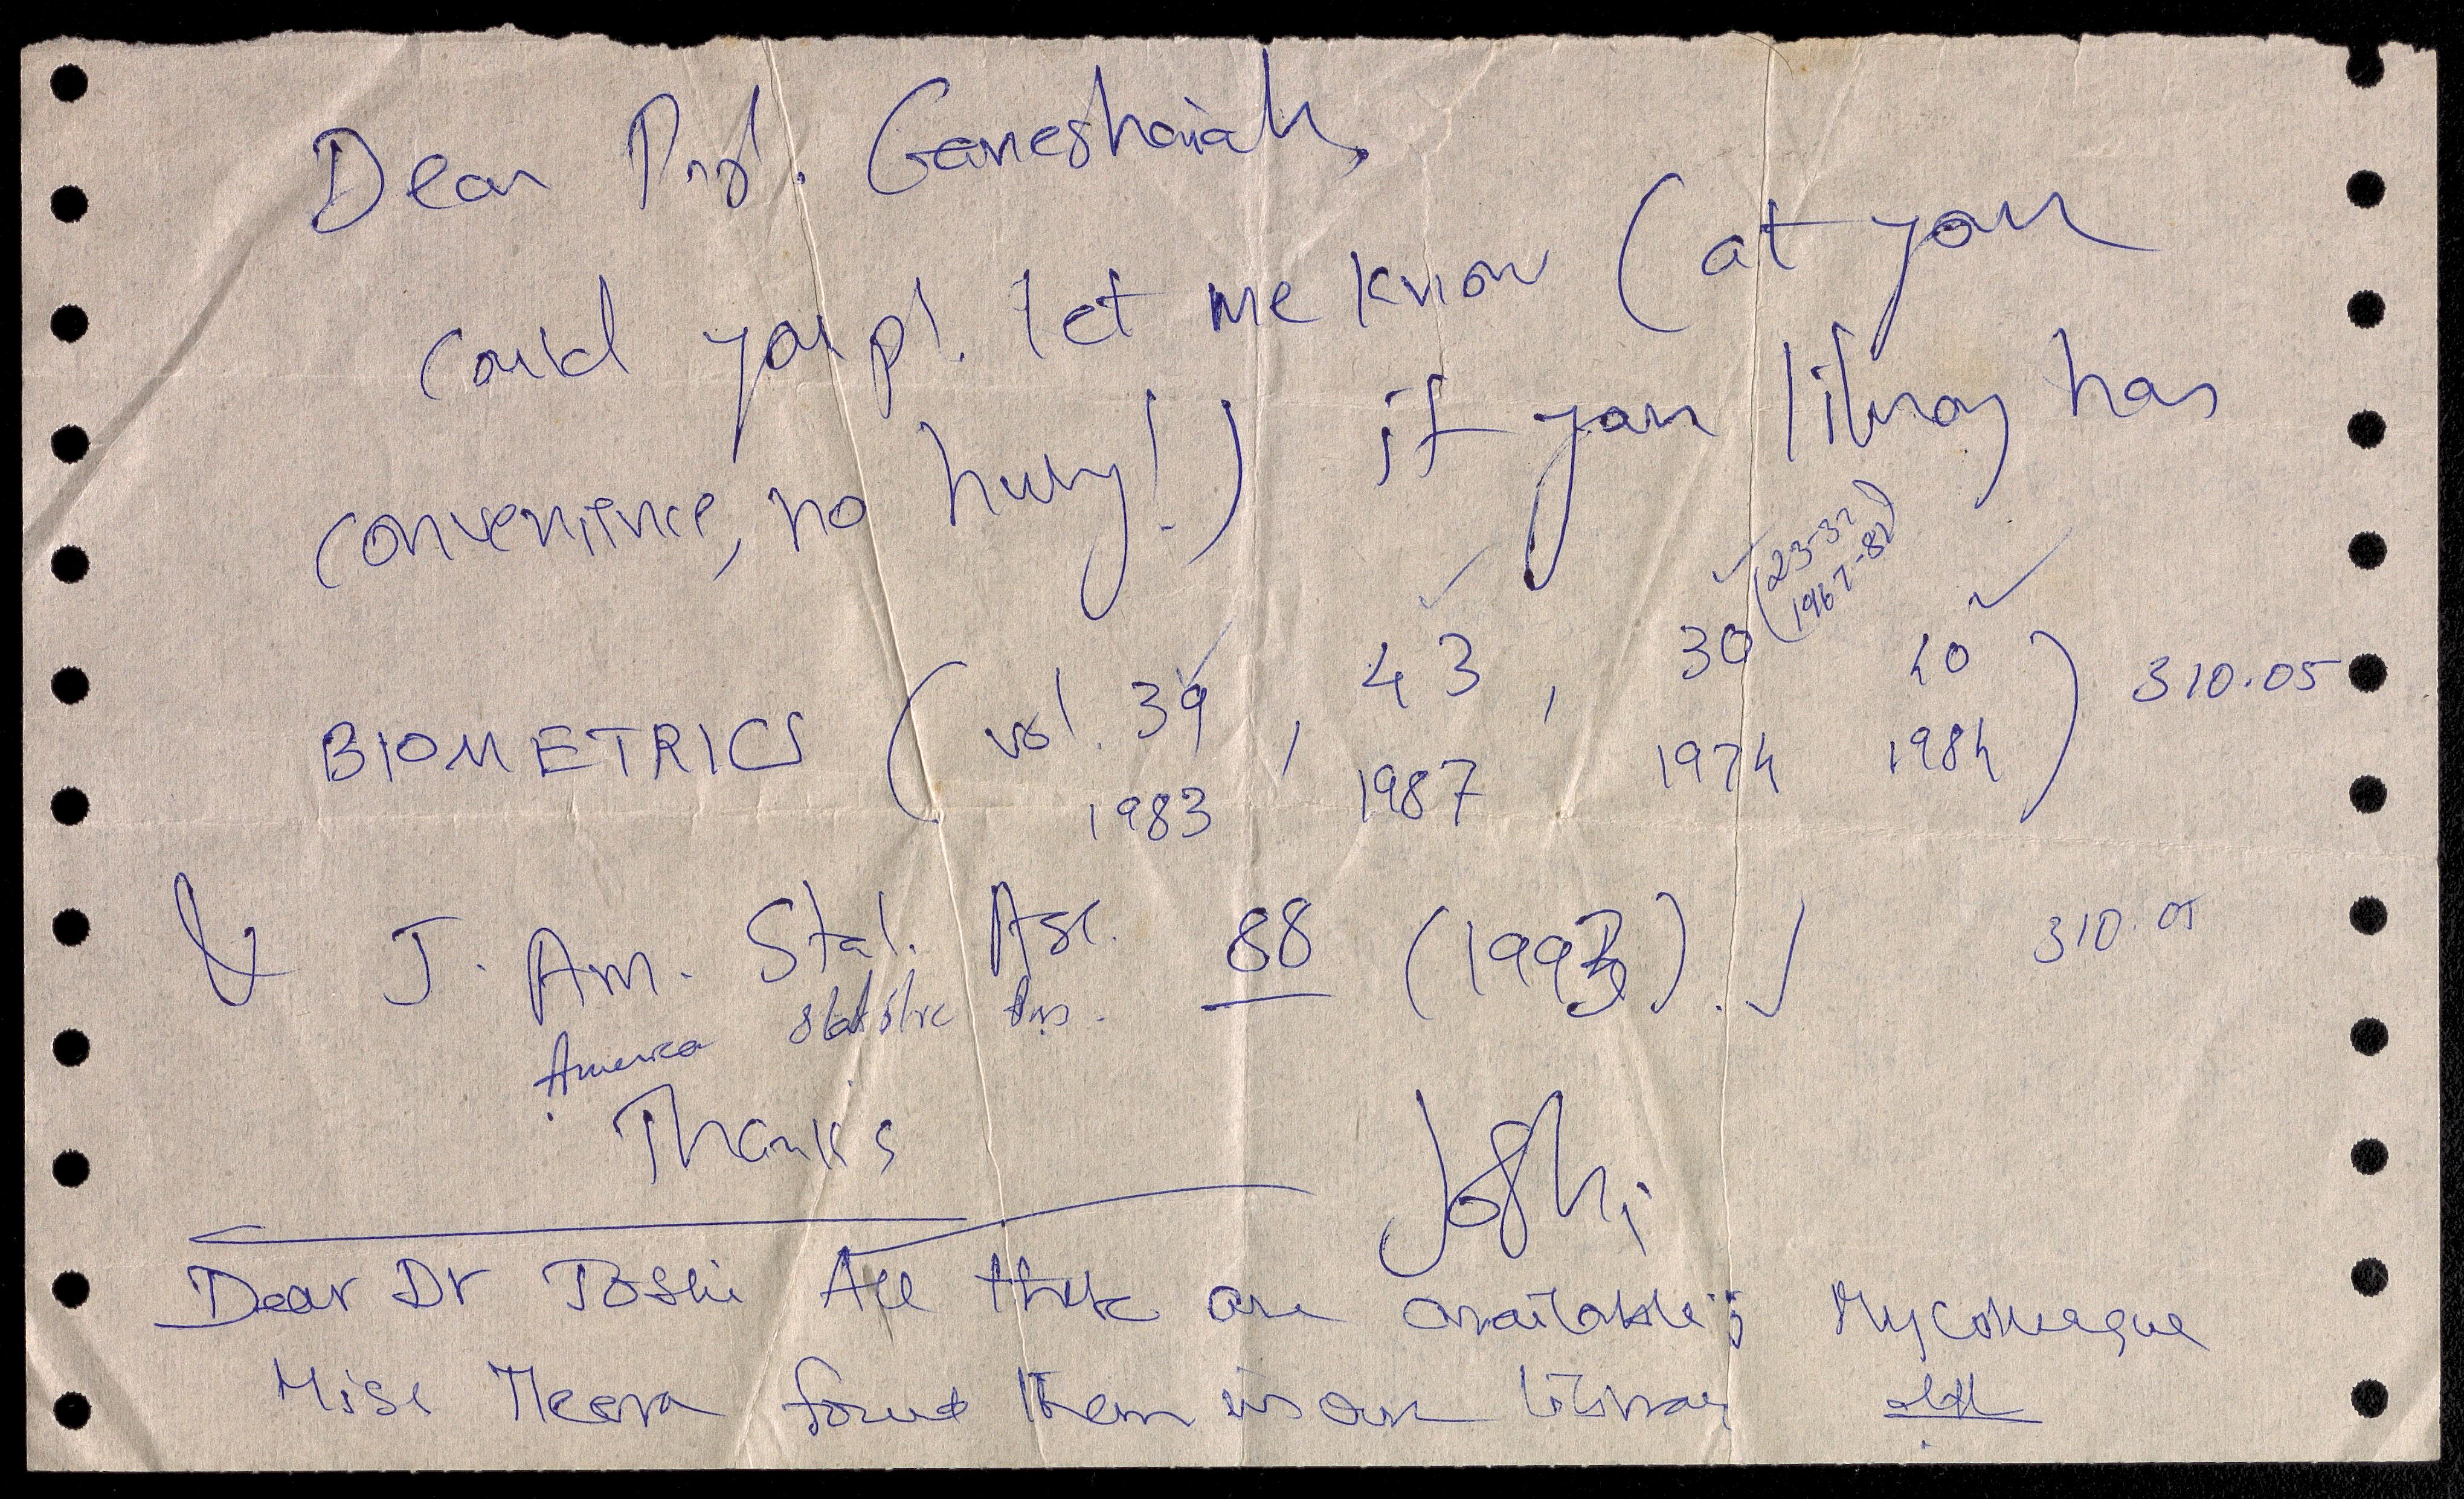 Dear Prof. Ganeshaiah,
could you pl. let me know (at your
convenience, no hurry!) if your library has
(23-37
1967-82)
BIOMETRICS (vol. 39, 43, 30 40) 310.05
1983 1987 1974 1984
& J. Am. Stat. Asc. 88 (1993). ✓ 310.05
America statistic
Thanks
Joshi
Dear Dr Joshi All these are available; My colleague
Miss Meera found them in our library